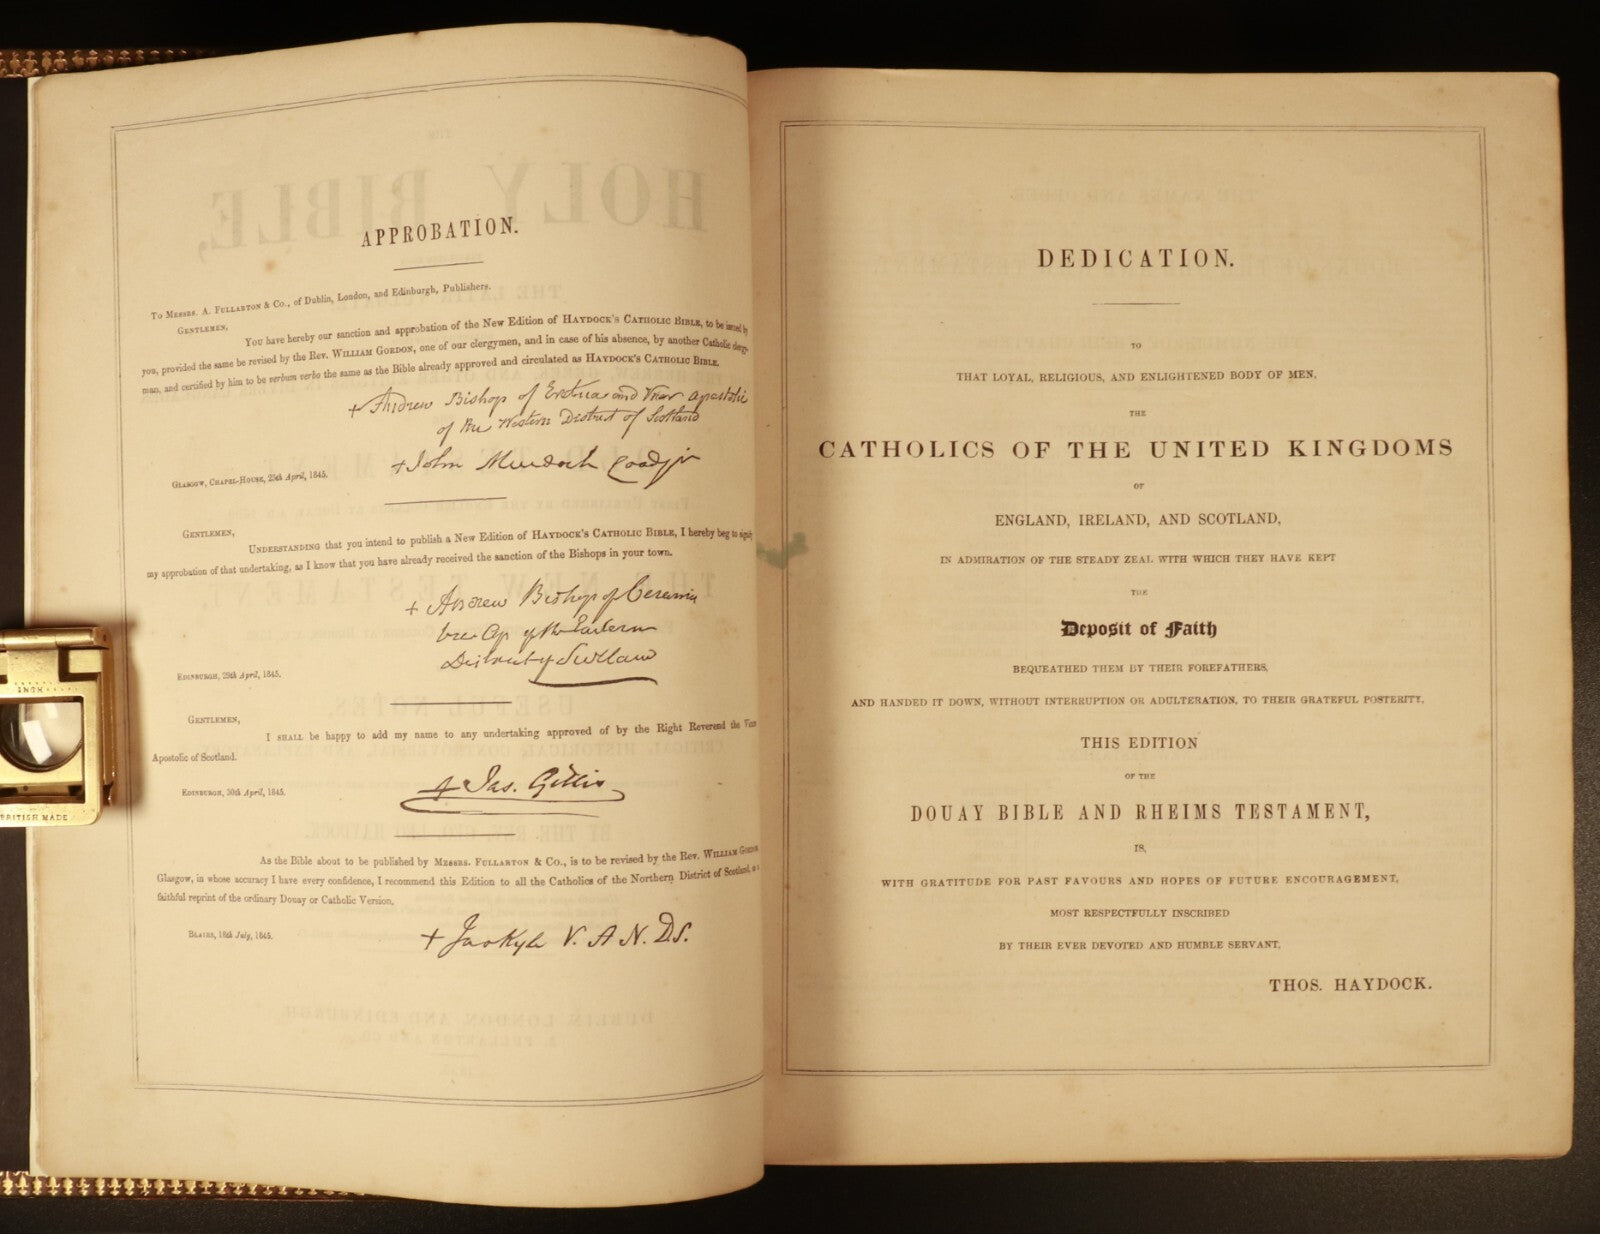 APPROBATION.
To Messrs. A. Fullarton & Co., of Dublin, London, and Edinburgh, Publishers.
Gentlemen,
You have hereby our sanction and approbation of the New Edition of Haydock's Catholic Bible, to be issued by
you, provided the same be revised by the Rev. William Gordon, one of our clergymen, and in case of his absence, by another Catholic clergy-
man, and certified by him to be verbum verbo the same as the Bible already approved and circulated as Haydock's Catholic Bible.
+ Andrew Bishop of Eretria and Vicar apostolic
of the Western District of Scotland
+ John Murdoch Coadjr
Glasgow, Chapel-House, 25th April, 1845.
Gentlemen,
Understanding that you intend to publish a New Edition of Haydock's Catholic Bible, I hereby beg to signify
my approbation of that undertaking, as I know that you have already received the sanction of the Bishops in your town.
+ Andrew Bishop of Ceramis
Vic Ap of the Eastern
District of Scotland
Edinburgh, 29th April, 1845.
Gentlemen,
I shall be happy to add my name to any undertaking approved of by the Right Reverend the Vicar
Apostolic of Scotland.
+ Jas. Gillis
Edinburgh, 30th April, 1845.
As the Bible about to be published by Messrs. Fullarton & Co., is to be revised by the Rev. William Gordon
Glasgow, in whose accuracy I have every confidence, I recommend this Edition to all the Catholics of the Northern District of Scotland, as a
faithful reprint of the ordinary Douay or Catholic Version.
+ Jas Kyle V. A N. D S.
Blairs, 18th July, 1845.
INCH
BRITISH MADE
DEDICATION.
TO
THAT LOYAL, RELIGIOUS, AND ENLIGHTENED BODY OF MEN,
THE
CATHOLICS OF THE UNITED KINGDOMS
OF
ENGLAND, IRELAND, AND SCOTLAND,
IN ADMIRATION OF THE STEADY ZEAL WITH WHICH THEY HAVE KEPT
THE
Deposit of Faith
BEQUEATHED THEM BY THEIR FOREFATHERS,
AND HANDED IT DOWN, WITHOUT INTERRUPTION OR ADULTERATION, TO THEIR GRATEFUL POSTERITY,
THIS EDITION
OF THE
DOUAY BIBLE AND RHEIMS TESTAMENT,
IS,
WITH GRATITUDE FOR PAST FAVOURS AND HOPES OF FUTURE ENCOURAGEMENT,
MOST RESPECTFULLY INSCRIBED
BY THEIR EVER DEVOTED AND HUMBLE SERVANT,
THOS. HAYDOCK.